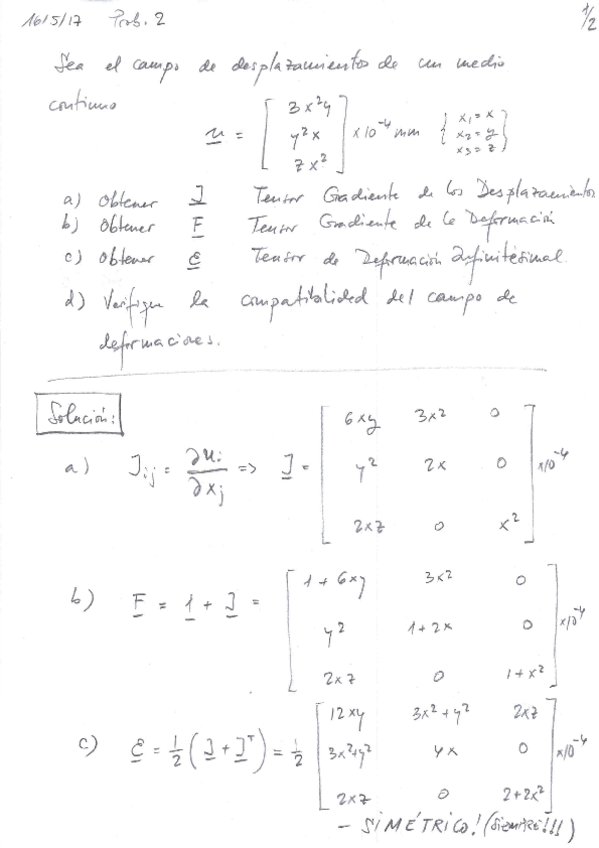 16/5/17 Prob. 2 1/2
Sea el campo de desplazamientos de un medio
continuo
u = [ 3x²y ; y²x ; zx² ] x10⁻⁴ mm { x₁=x ; x₂=y ; x₃=z }
a) Obtener J Tensor Gradiente de los Desplazamientos
b) Obtener F Tensor Gradiente de la Deformación
c) Obtener ε Tensor de Deformación Infinitésimal
d) Verifique la compatibilidad del campo de
deformaciones.
Solución:
a) Jij = ∂ui/∂xj => J = [ 6xy 3x² 0 ; y² 2x 0 ; 2xz 0 x² ] x10⁻⁴
b) F = 1 + J = [ 1+6xy 3x² 0 ; y² 1+2x 0 ; 2xz 0 1+x² ] x10⁻⁴
c) ε = 1/2 (J + Jᵀ) = 1/2 [ 12xy 3x²+y² 2xz ; 3x²+y² 4x 0 ; 2xz 0 2+2x² ] x10⁻⁴
- SIMÉTRICO! (SIEMPRE!!!)